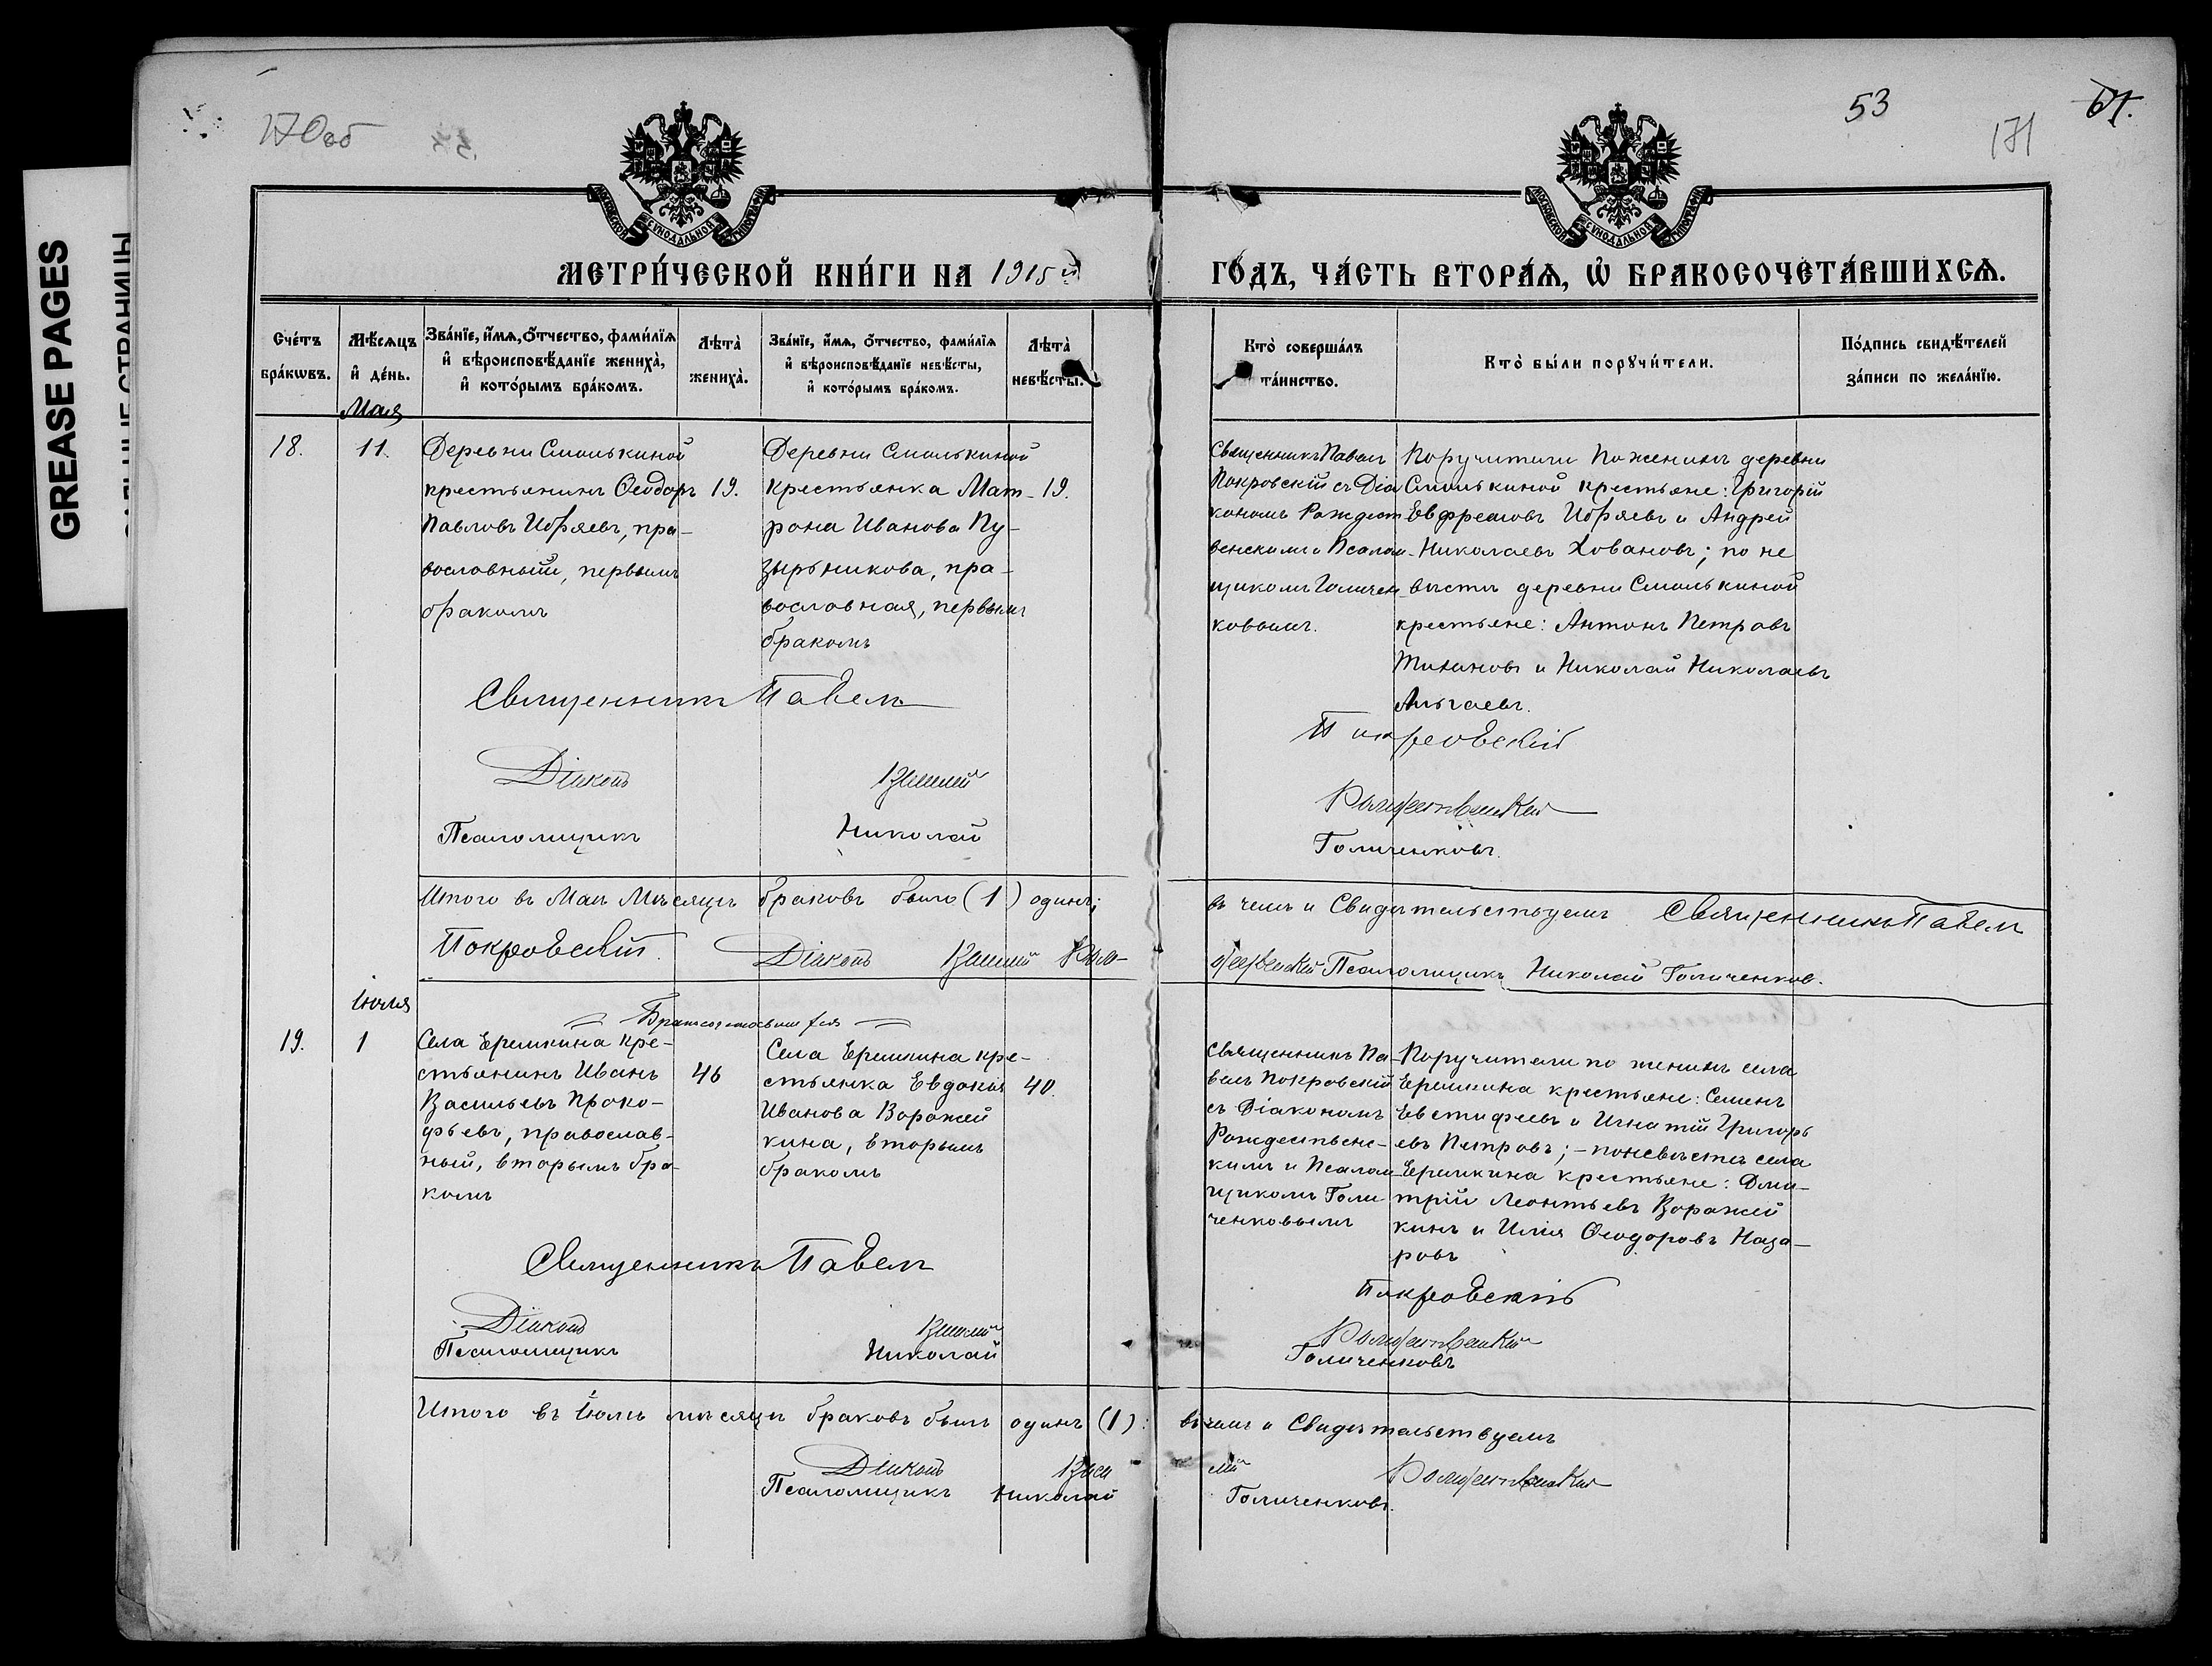 GREASE PAGES
170об
53
171
МОСКОВСКОЙ СѴНОДАЛЬНОЙ ТИПОГРАФІИ
МОСКОВСКОЙ СѴНОДАЛЬНОЙ ТИПОГРАФІИ
МЕТРИ́ЧЕСКОЙ КНИ́ГИ НА 1915й
ГО́ДЪ, ЧА́СТЬ ВТОРА́Я, Ѡ҆ БРАКОСОЧЕТА́ВШИХСѦ.
Сче́тъ бра́кѡвъ.
Мѣ́сяцъ и҆ де́нь.
Зва́нїе, и҆́мѧ, ѻ҆́тчество, фами́лїѧ и҆ вѣроисповѣ́данїе жениха̀, и҆ кото́рымъ бра́комъ.
Лѣ́та̀ жениха̀.
Зва́нїе, и҆́мѧ, ѻ҆́тчество, фами́лїѧ и҆ вѣроисповѣ́данїе невѣ́сты, и҆ кото́рымъ бра́комъ.
Лѣ́та̀ невѣ́сты.
Кто̀ соверша́лъ та́инство.
Кто̀ бы́ли порꙋчи́тели.
По́дпись свидѣ́телей за́писи по жела́нїю.
Мая
18.
11.
Деревни Смолькиной
крестьянинъ Ѳеодоръ
Павловъ Ибряевъ, пра-
вославный, первымъ
бракомъ
19.
Деревни Смолькиной
крестьянка Мат-
рона Иванова Пу-
зырникова, пра-
вославная, первымъ
бракомъ
19.
Священникъ Павелъ
Покровскій съ Діа
кономъ Рождест
венскимъ и Псалом-
щикомъ Голичен
ковымъ.
Поручители по женихѣ деревни
Смолькиной крестьяне: Григорій
Евфремовъ Ибряевъ и Андрей
Николаевъ Ховановъ; по не
вѣстѣ деревни Смолькиной
крестьяне: Антонъ Петровъ
и Николай Николаевъ
Священникъ Павелъ Покровскій
Діаконъ Василій Рождественскій
Псаломщикъ Николай Голиченковъ.
Итого въ Маѣ Мѣсяцѣ браковъ было (1) одинъ; въ чемъ и Свидѣтельствуемъ Священникъ Павелъ
Покровскій. Діаконъ Василій Рож- дественскій Псаломщикъ Николай Голиченков.
Іюля
Бракосочетавшіеся
19.
1
Села Еремкина кре-
стьянинъ Иванъ
Васильевъ Проко-
фьевъ, православ-
ный, вторымъ бра-
комъ
46
Села Еремкина кре-
стьянка Евдокія
Иванова Воражей
кина, вторымъ
бракомъ
40.
Священникъ Па-
велъ Покровскій
съ Діакономъ
Рождественс-
кимъ и Псалом
щикомъ Голи-
ченковымъ
Поручители по женихѣ села
Еремкина крестьяне: Семенъ
Евстифеевъ и Игнатій Григорь
евъ Петровъ; - по невѣстѣ села
Еремкина крестьяне: Дми-
трій Леонтьевъ Воражей
кинъ и Илія Ѳеодоровъ Наза-
ровъ
Священникъ Павелъ Покровскій
Діаконъ Василій Рождественскій
Псаломщикъ Николай Голиченковъ
Итого въ Іюлѣ мѣсяцѣ браковъ былъ одинъ (1): въ чемъ и Свидѣтельствуемъ
Діаконъ Василій Рождественскій
Псаломщикъ Николай Голиченковъ.